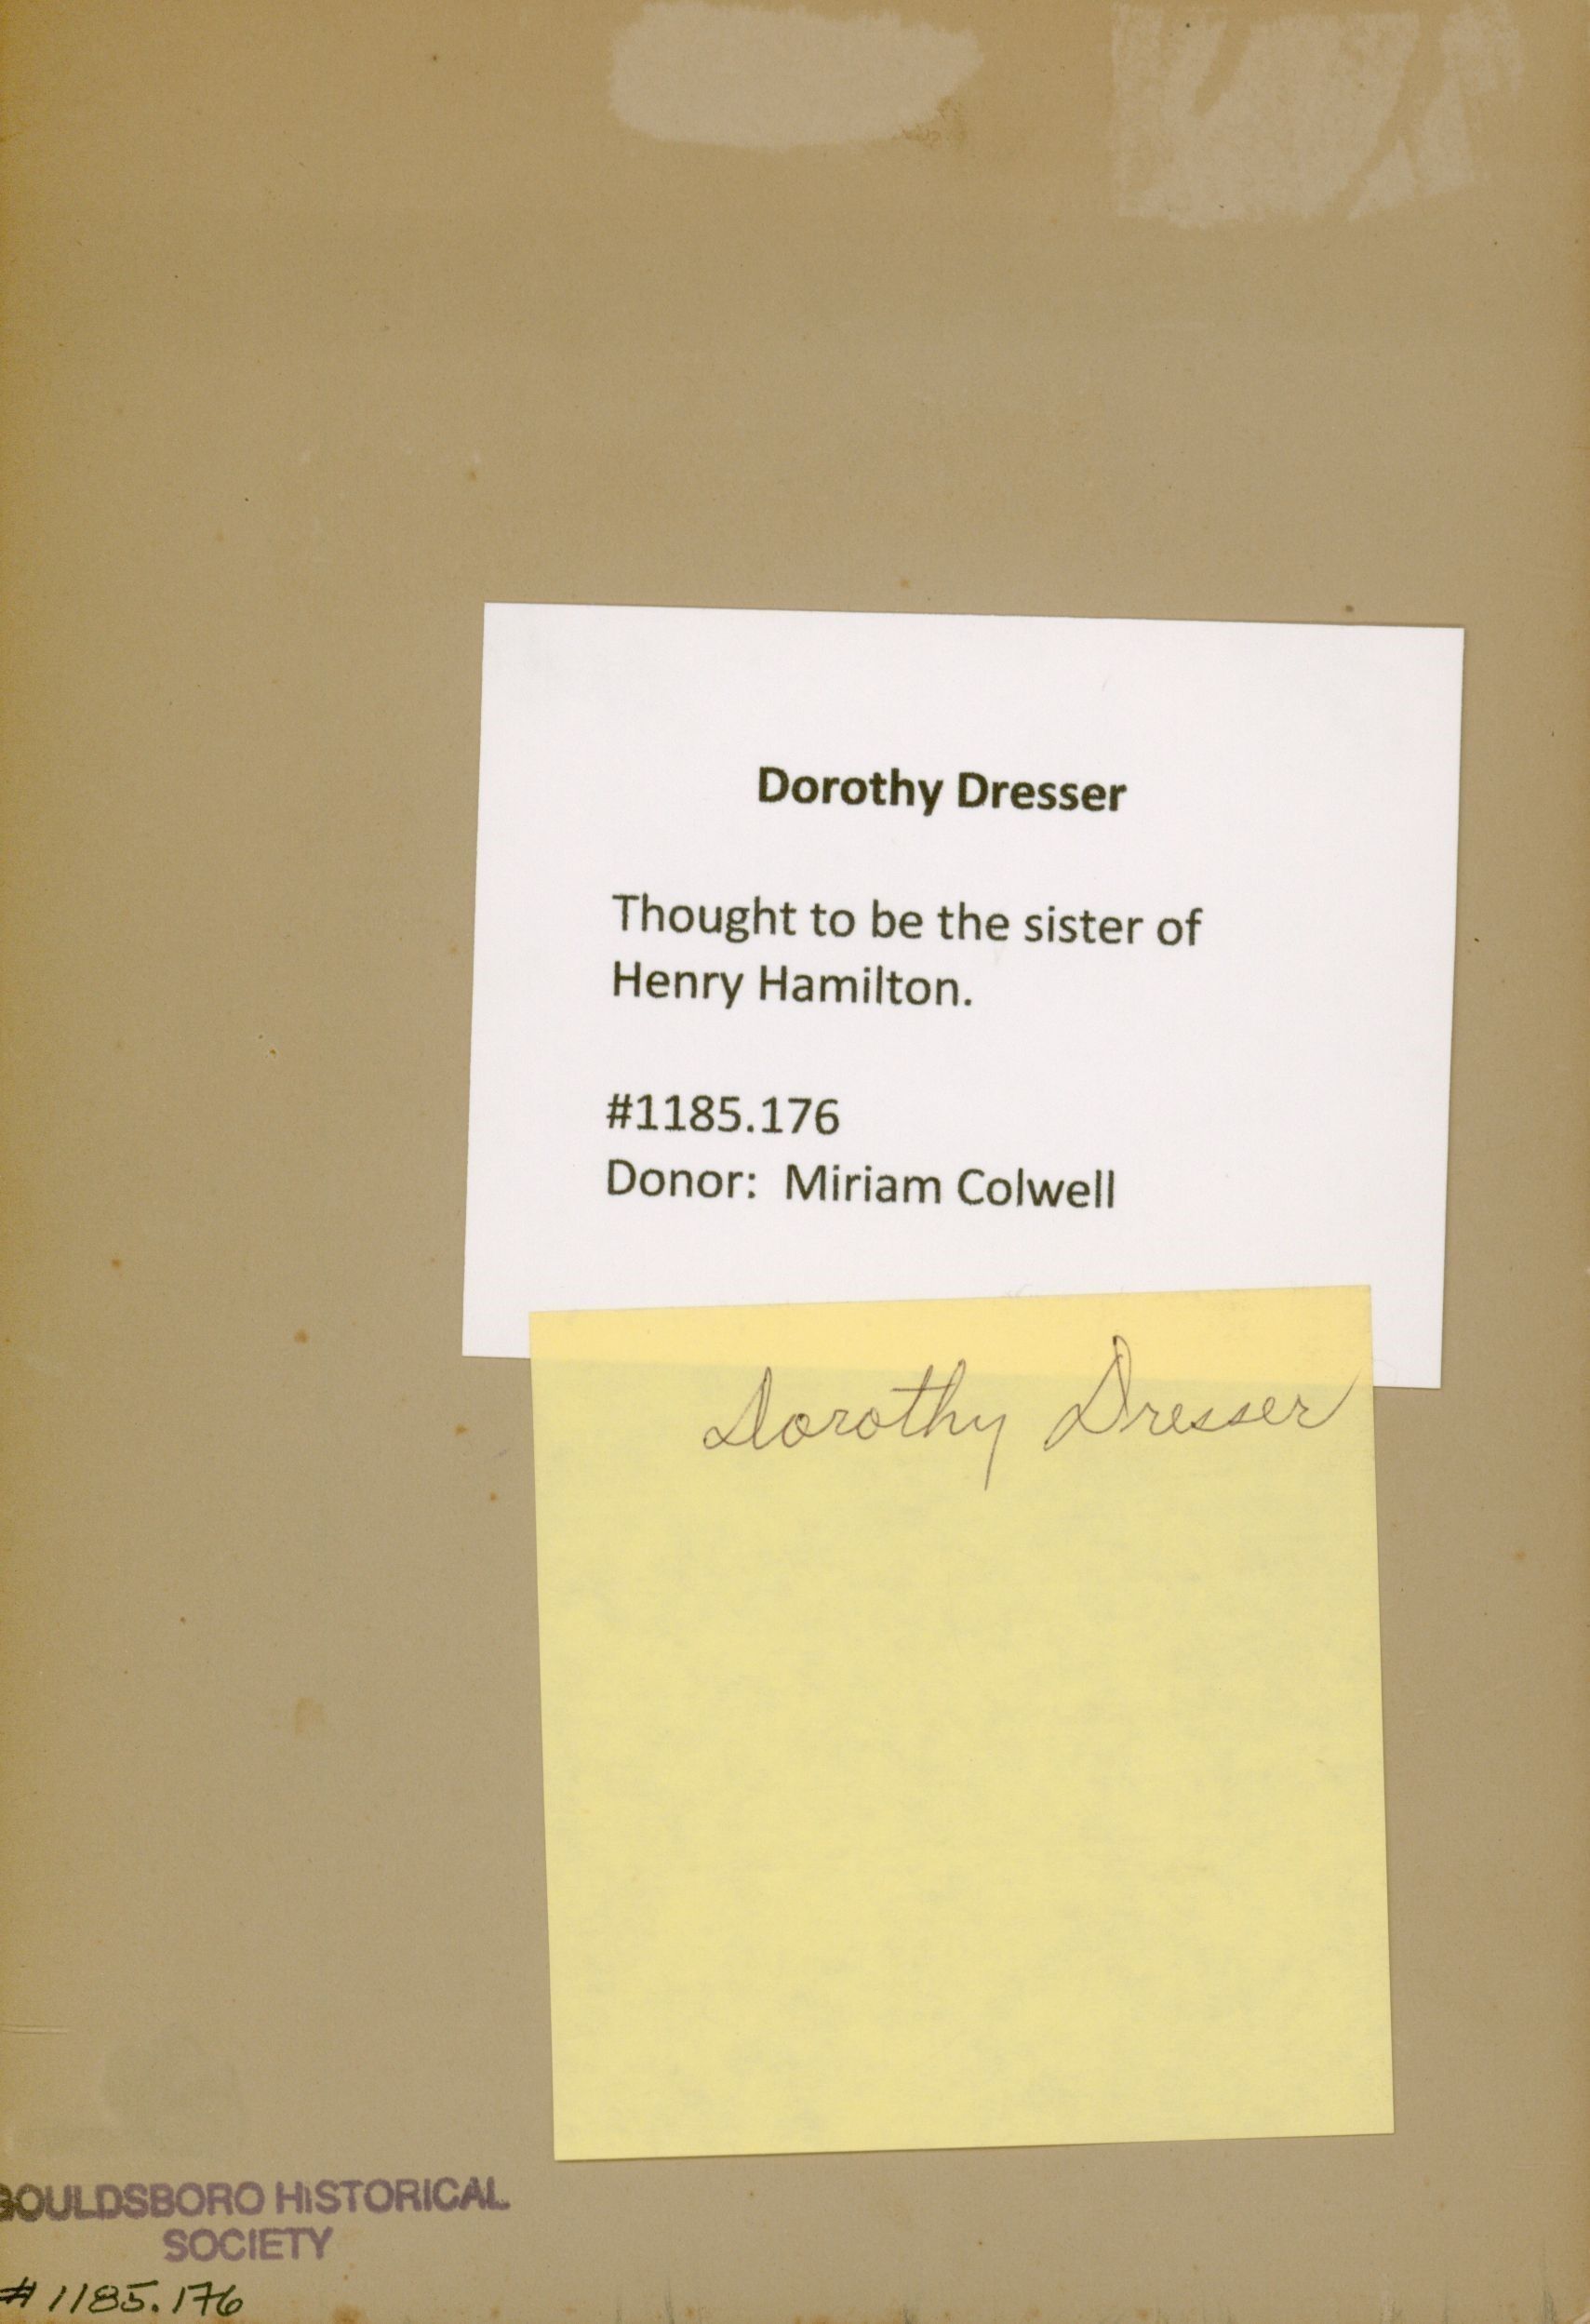 Dorothy Dresser
Thought to be the sister of
Henry Hamilton.
#1185.176
Donor: Miriam Colwell
Dorothy Dresser
GOULDSBORO HISTORICAL
SOCIETY
# 1185.176